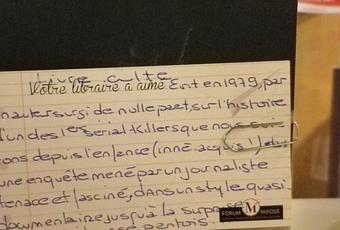 Livre culte
Votre libraire a aimé Ecrit en 1979, par
n auteur surgi de nulle part, sur l'histoire
d'un des 1ers serial Killers que nous sui
ons depuis l'enfance (inné-acquis !) du
une enquête mené par un journaliste
tenace et fasciné, dans un style quasi
documentaire jusqu'à la
FORUM M MIROSE